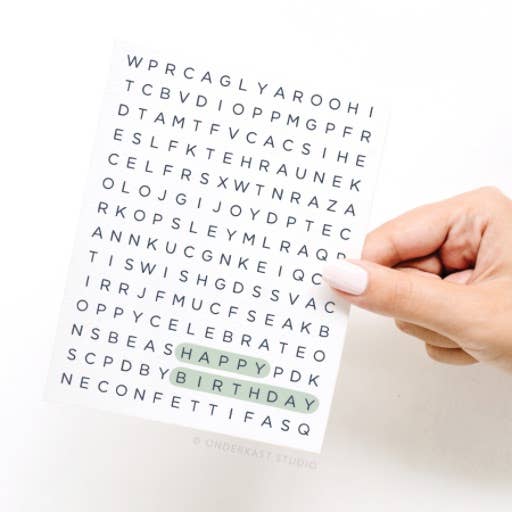 WPRCAGLYAROOHI
TCBVDIOPPMGPFR
DTAMTFVCACSIHE
ESLFKTEHRAUNEK
CELFRSXWTNRAZA
OLOJGIJOYDPTEC
RKOPSLEYMLRAQP
ANNKUCGNKEIQC
TISWISHGDSSVAC
IRRJFMUCFSEAKB
OPPYCELEBRATEO
NSBEASHAPPYPDK
SCPDBYBIRTHDAY
NECONFETTIFASQ
© ONDERKAST STUDIO